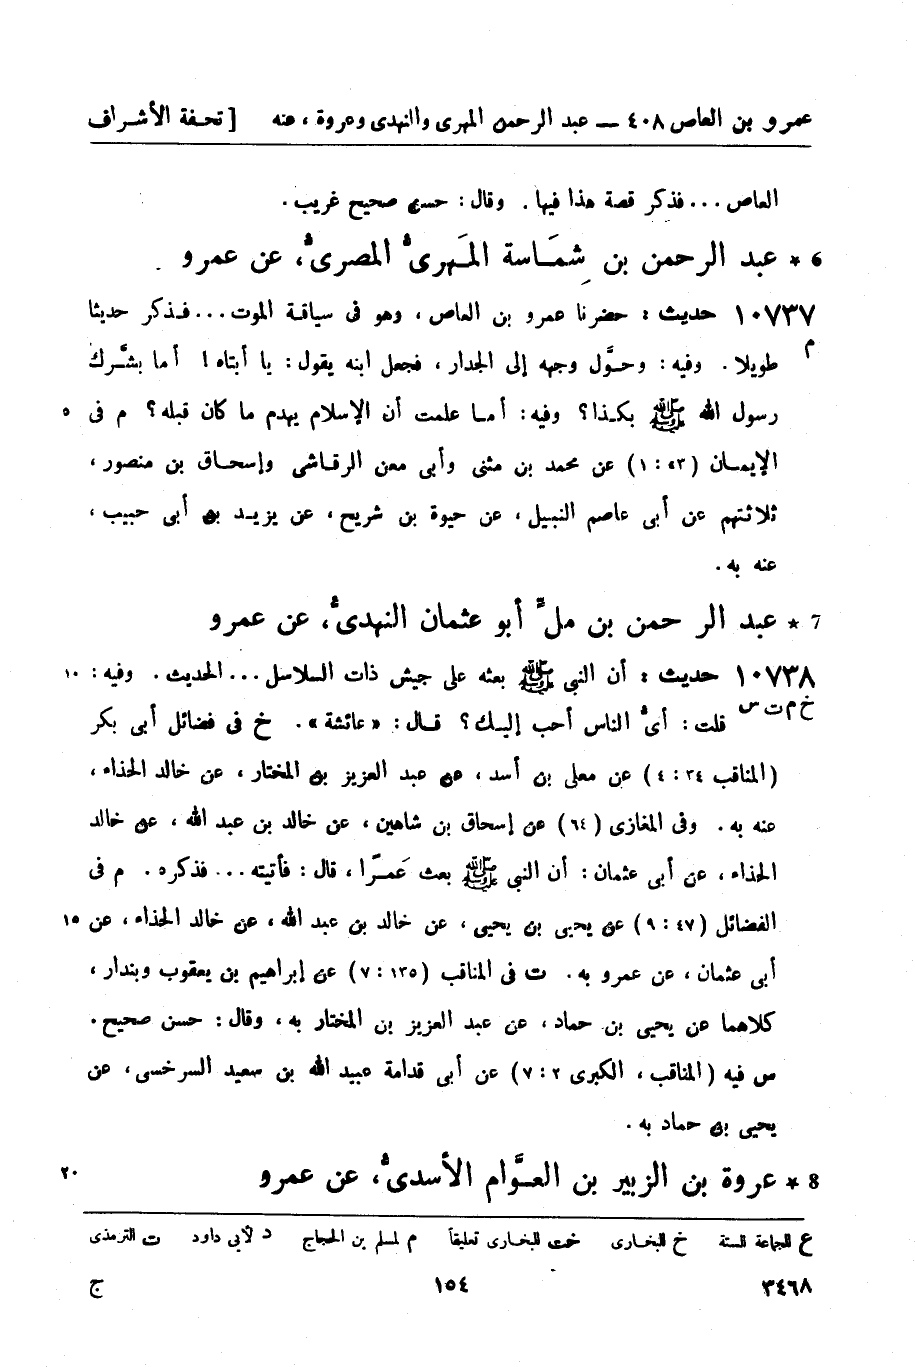 عمرو بن العاص ٤٠٨ — عبد الرحمن المهرى والنهدى وعروة ، عنه [ تحفة الأشراف
العاص ... فذكر قصة هذا فيها . وقال : حسن صحيح غريب .
6 * عبد الرحمن بن شِمَاسة المَهرىُّ المصرىُّ، عن عمرو
١٠٧٣٧ حديث : حضرنا عمرو بن العاص ، وهو فى سياقة الموت ... فذكر حديثا
م طويلا . وفيه : وحوَّل وجهه إلى الجدار ، فجعل ابنه يقول : يا أبتاه ! أما بشَّرك
رسول الله ﷺ بكذا ؟ وفيه : أما علمت أن الإسلام يهدم ما كان قبله ؟ م فى ٥
الإيمان ( ٥٣ : ١ ) عن محمد بن مثنى وأبى معن الرقاشى وإسحاق بن منصور ،
ثلاثتهم عن أبى عاصم النبيل ، عن حيوة بن شريح ، عن يزيد بن أبى حبيب ،
عنه به .
7 * عبد الرحمن بن ملٍّ أبو عثمان النهدىُّ، عن عمرو
١٠٧٣٨ حديث : أن النبى ﷺ بعثه على جيش ذات السلاسل ... الحديث . وفيه : ١٠
خ م ت س قلت : أىُّ الناس أحب إليك ؟ قال : « عائشة » . خ فى فضائل أبى بكر
( المناقب ٣٤ : ٤ ) عن معلى بن أسد ، عن عبد العزيز بن المختار ، عن خالد الحذاء ،
عنه به . وفى المغازى ( ٦٤ ) عن إسحاق بن شاهين ، عن خالد بن عبد الله ، عن خالد
الحذاء ، عن أبى عثمان : أن النبى ﷺ بعث عَمرًا ، قال : فأتيته ... فذكره . م فى
الفضائل ( ٤٧ : ٩ ) عن يحيى بن يحيى ، عن خالد بن عبد الله ، عن خالد الحذاء ، عن ١٥
أبى عثمان ، عن عمرو به . ت فى المناقب ( ١٣٥ : ٧ ) عن إبراهيم بن يعقوب وبندار ،
كلاهما عن يحيى بن حماد ، عن عبد العزيز بن المختار به ، وقال : حسن صحيح .
س فيه ( المناقب ، الكبرى ٢ : ٧ ) عن أبى قدامة عبيد الله بن سعيد السرخسى ، عن
يحيى بن حماد به .
8 * عروة بن الزبير بن العوَّام الأسدىُّ، عن عمرو ٢٠
ع للجماعة الستة خ للبخارى خت للبخارى تعليقاً م لمسلم بن الحجاج د لأبى داود ت الترمذى
٣٤٦٨ ١٥٤ ج